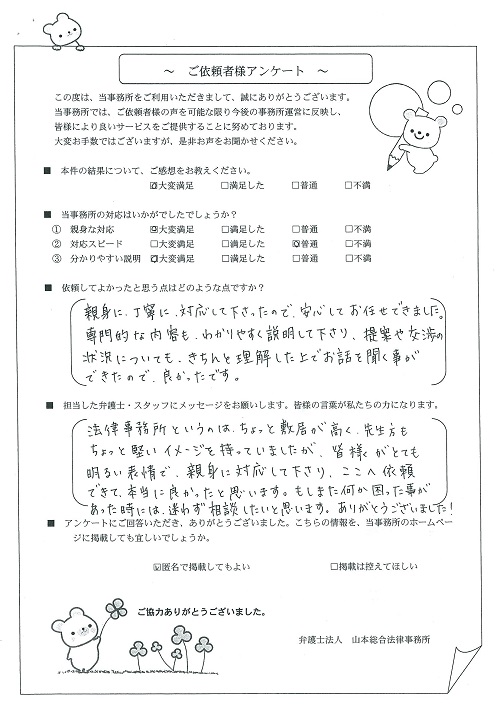 ～ ご依頼者様アンケート ～
この度は、当事務所をご利用いただきまして、誠にありがとうございます。
当事務所では、ご依頼者様の声を可能な限り今後の事務所運営に反映し、
皆様により良いサービスをご提供することに努めております。
大変お手数ではございますが、是非お声をお聞かせください。
■ 本件の結果について、ご感想をお教えください。
☑大変満足 □満足した □普通 □不満
■ 当事務所の対応はいかがでしたでしょうか？
① 親身な対応 ☑大変満足 □満足した □普通 □不満
② 対応スピード □大変満足 □満足した ☑普通 □不満
③ 分かりやすい説明 ☑大変満足 □満足した □普通 □不満
■ 依頼してよかったと思う点はどのような点ですか？
親身に、丁寧に、対応して下さったので、安心してお任せできました。
専門的な内容も、わかりやすく説明して下さり、提案や交渉の
状況についても、きちんと理解した上でお話を聞く事が
できたので、良かったです。
■ 担当した弁護士・スタッフにメッセージをお願いします。皆様の言葉が私たちの力になります。
法律事務所というのは、ちょっと敷居が高く、先生方も
ちょっと堅いイメージを持っていましたが、皆様がとても
明るい表情で、親身に対応して下さり、ここへ依頼
できて、本当に良かったと思います。もしまた何か困った事が
あった時には、迷わず相談したいと思います。ありがとうございました！
■ アンケートにご回答いただき、ありがとうございました。こちらの情報を、当事務所のホームペー
ジに掲載しても宜しいでしょうか。
☑匿名で掲載してもよい □掲載は控えてほしい
ご協力ありがとうございました。
弁護士法人 山本総合法律事務所